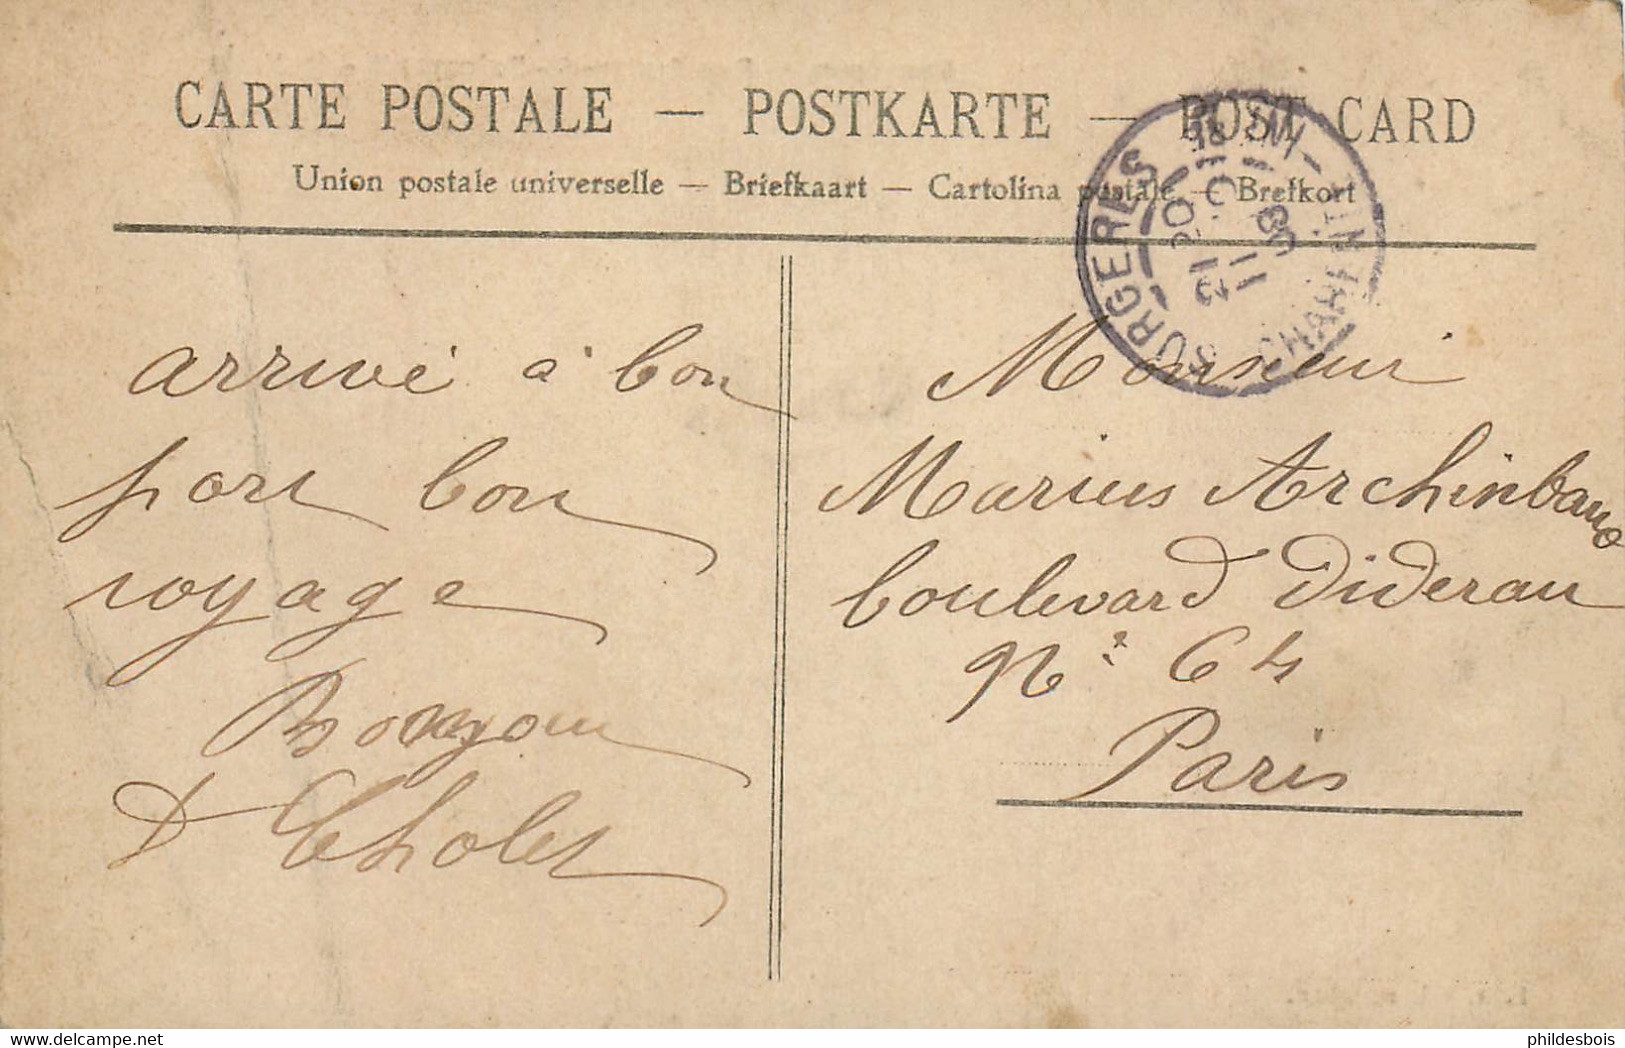 CARTE POSTALE — POSTKARTE — POST CARD
Union postale universelle — Briefkaart — Cartolina postale — Brefkort
SURGERES
21 20
11
08
CHAR
arrivé à bon
port bon
voyage
Bonjour
D Cholet
Monsieur
Marius Archinbaud
boulevard Diderau
N° 64
Paris
www.delcampe.net
phildesbois